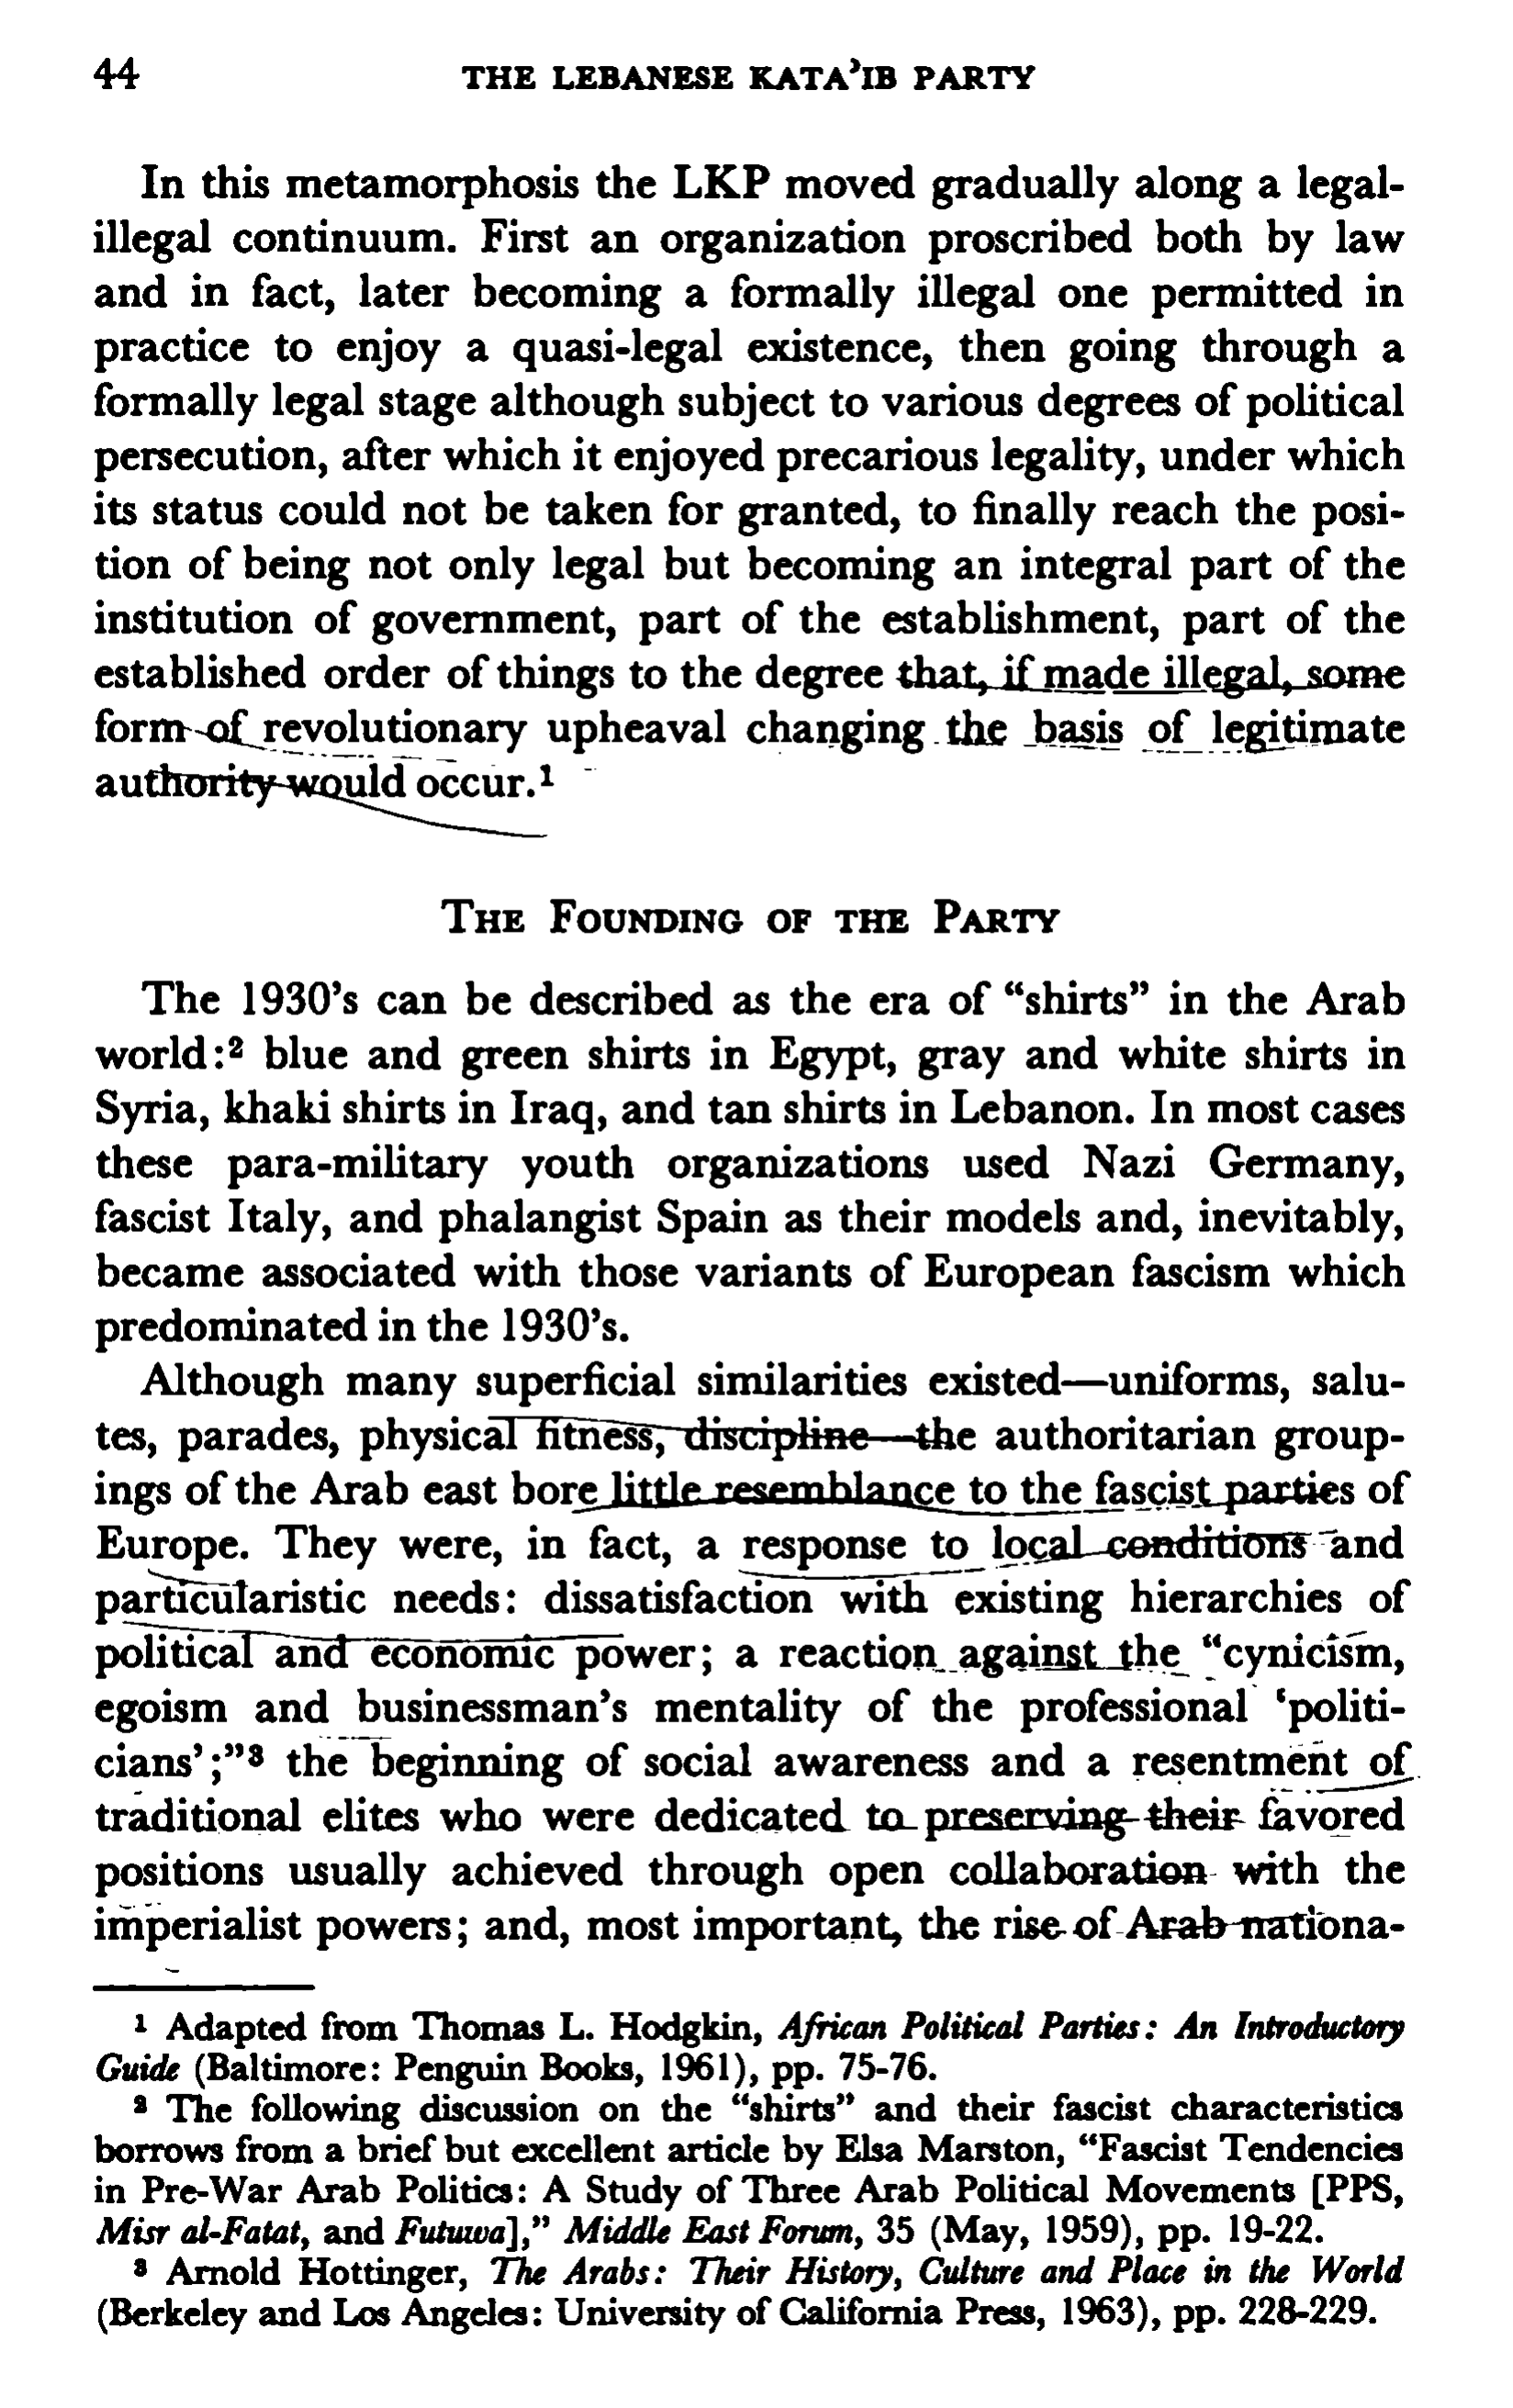 44 THE LEBANESE KATA’IB PARTY
In this metamorphosis the LKP moved gradually along a legal-
illegal continuum. First an organization proscribed both by law
and in fact, later becoming a formally illegal one permitted in
practice to enjoy a quasi-legal existence, then going through a
formally legal stage although subject to various degrees of political
persecution, after which it enjoyed precarious legality, under which
its status could not be taken for granted, to finally reach the posi-
tion of being not only legal but becoming an integral part of the
institution of government, part of the establishment, part of the
established order of things to the degree that, if made illegal, some
form of revolutionary upheaval changing the basis of legitimate
authority would occur.¹
THE FOUNDING OF THE PARTY
The 1930’s can be described as the era of “shirts” in the Arab
world:² blue and green shirts in Egypt, gray and white shirts in
Syria, khaki shirts in Iraq, and tan shirts in Lebanon. In most cases
these para-military youth organizations used Nazi Germany,
fascist Italy, and phalangist Spain as their models and, inevitably,
became associated with those variants of European fascism which
predominated in the 1930’s.
Although many superficial similarities existed—uniforms, salu-
tes, parades, physical fitness, discipline—the authoritarian group-
ings of the Arab east bore little resemblance to the fascist parties of
Europe. They were, in fact, a response to local conditions and
particularistic needs: dissatisfaction with existing hierarchies of
political and economic power; a reaction against the “cynicism,
egoism and businessman’s mentality of the professional ‘politi-
cians’;”³ the beginning of social awareness and a resentment of
traditional elites who were dedicated to preserving their favored
positions usually achieved through open collaboration with the
imperialist powers; and, most important, the rise of Arab nationa-
¹ Adapted from Thomas L. Hodgkin, African Political Parties: An Introductory
Guide (Baltimore: Penguin Books, 1961), pp. 75-76.
² The following discussion on the “shirts” and their fascist characteristics
borrows from a brief but excellent article by Elsa Marston, “Fascist Tendencies
in Pre-War Arab Politics: A Study of Three Arab Political Movements [PPS,
Misr al-Fatat, and Futuwa],” Middle East Forum, 35 (May, 1959), pp. 19-22.
³ Arnold Hottinger, The Arabs: Their History, Culture and Place in the World
(Berkeley and Los Angeles: University of California Press, 1963), pp. 228-229.